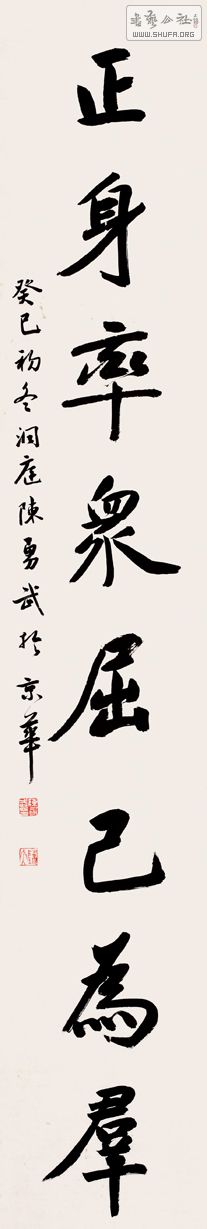 書藝公社
WWW.SHUFA.ORG
正身率眾屈己為羣
癸巳初冬洞庭陳勇武於京華